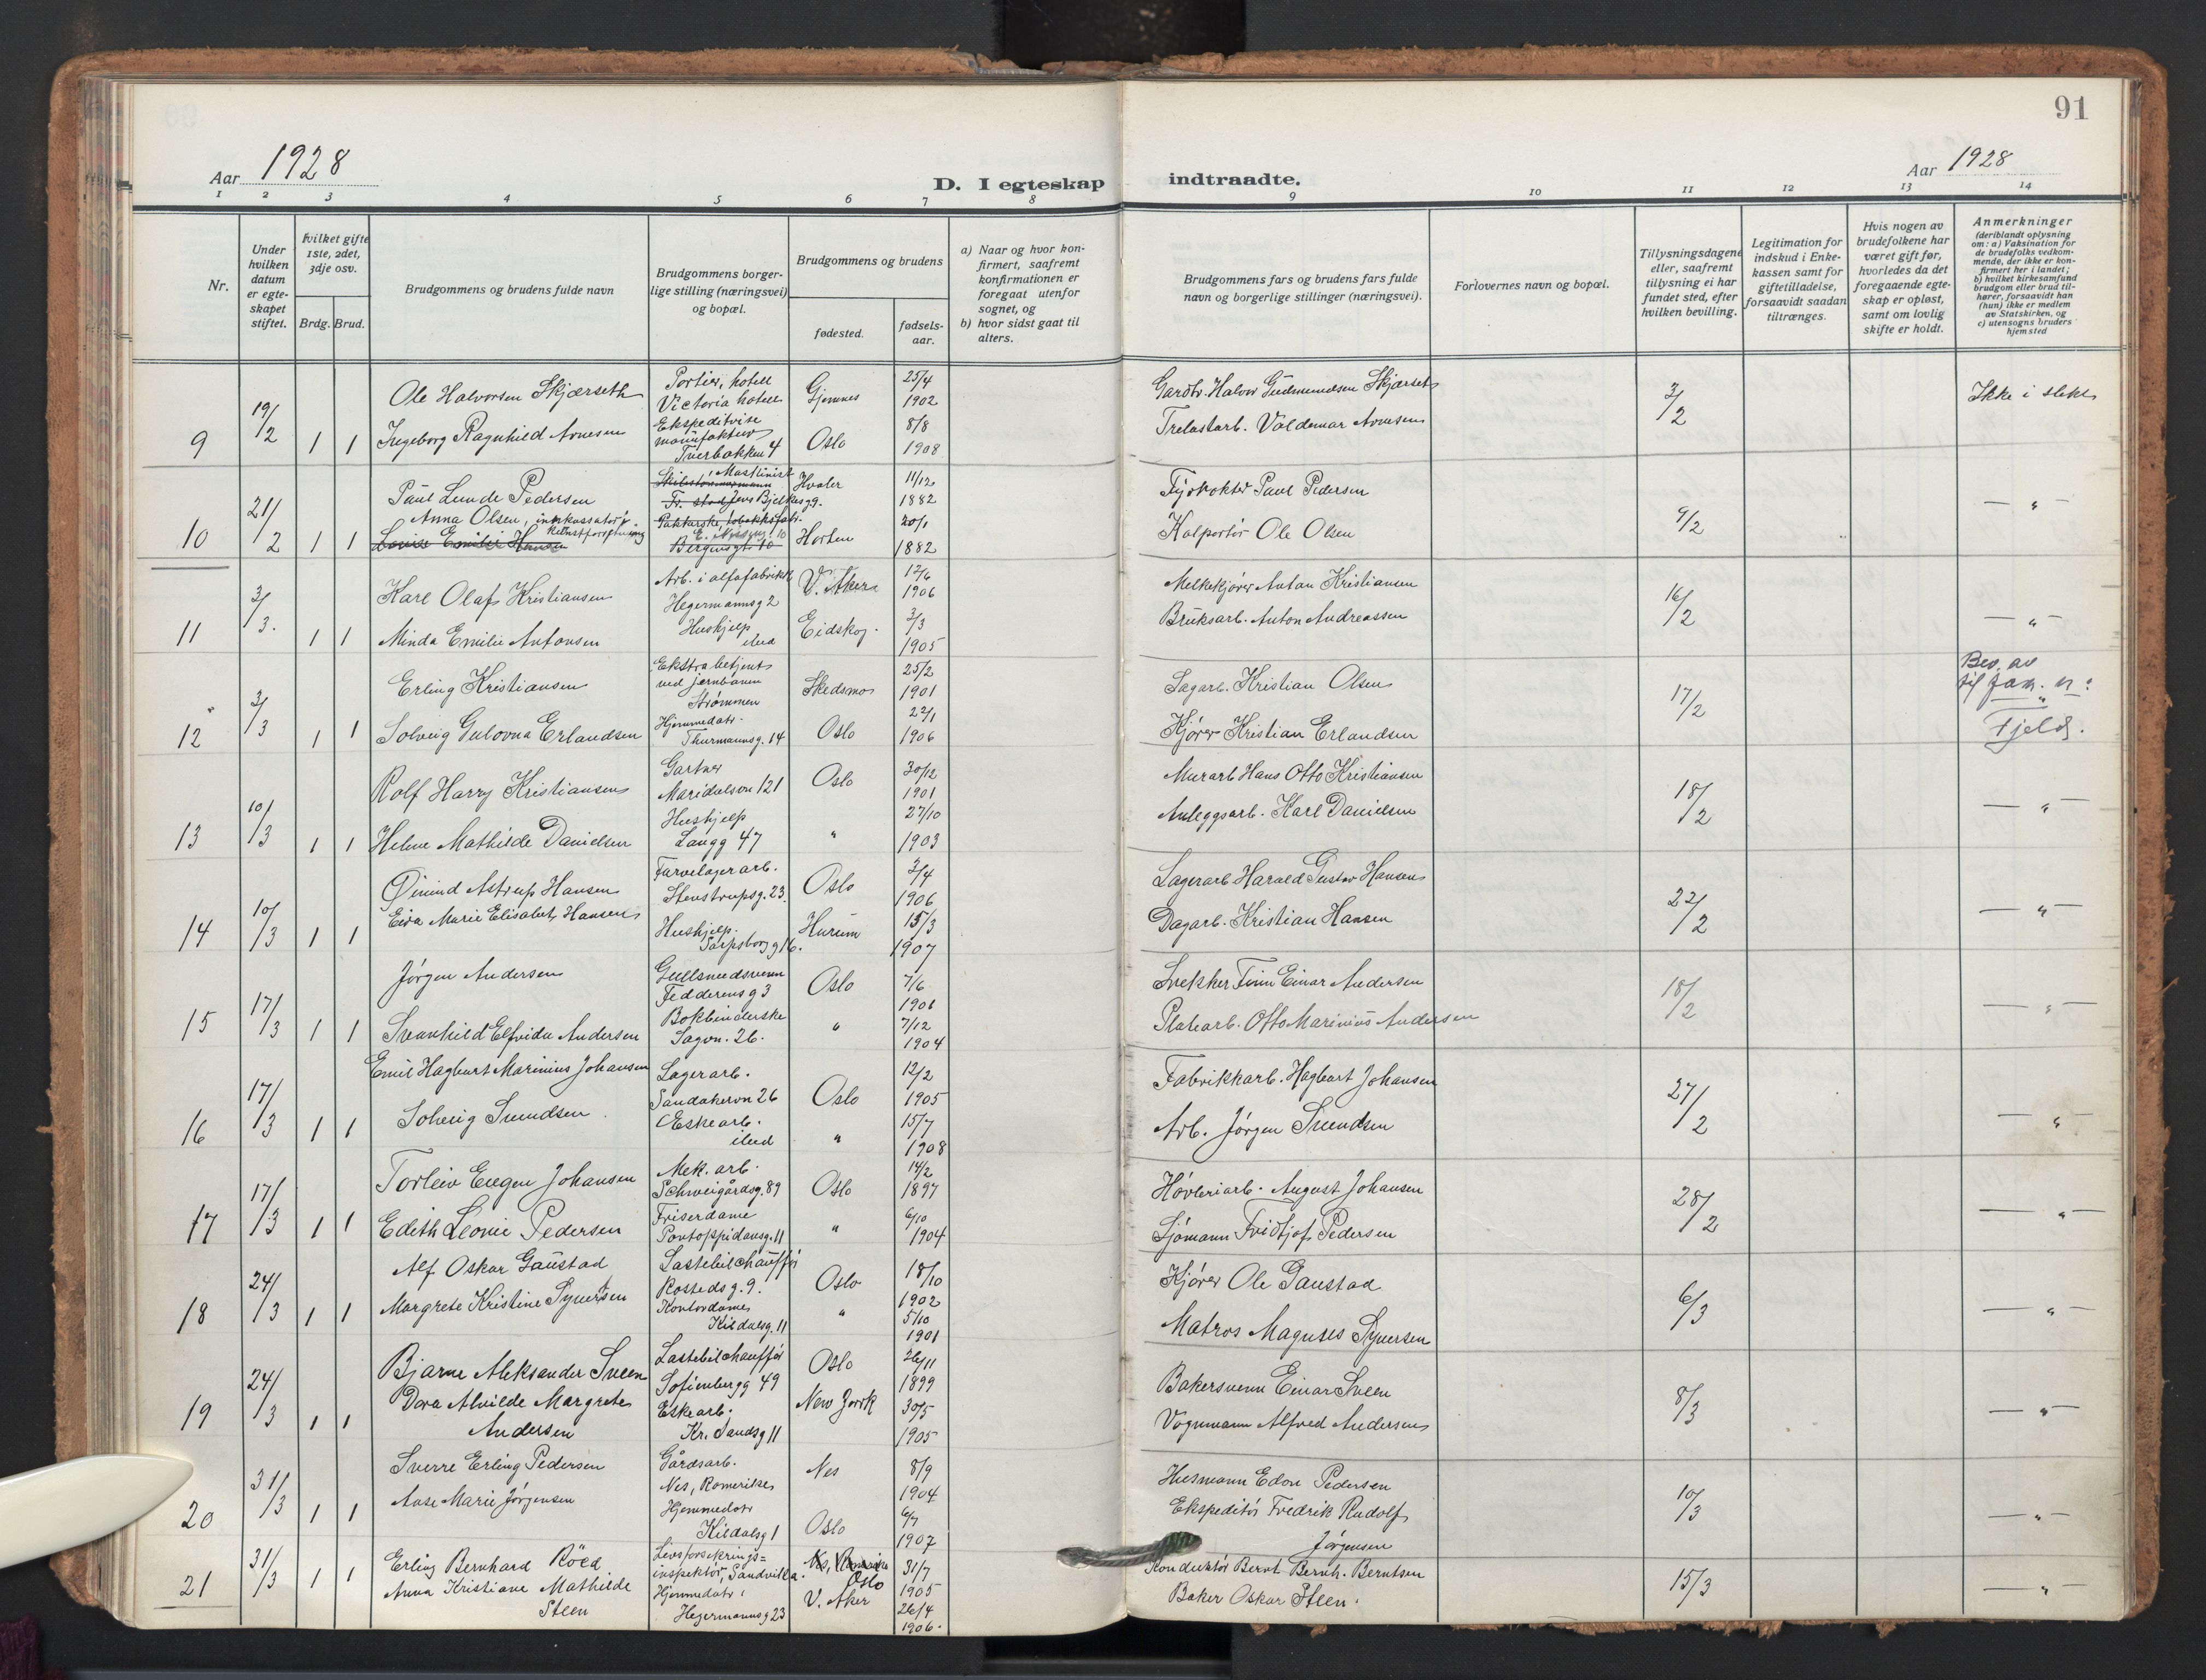 91
Aar 1928
D. I egteskap indtraadte.
Aar 1928
1 2 3 4 5 6 7 8 9 10 11 12 13 14
Nr.
Under hvilken datum er egte- skapet stiftet.
Hvilket gifte 1ste, 2det, 3dje osv.
Brdg. Brud.
Brudgommens og brudens fulde navn
Brudgommens borger- lige stilling (næringsvei) og bopæl.
Brudgommens og brudens
fødested.
fødsels- aar.
a) Naar og hvor kon- firmert, saafremt konfirmationen er foregaat utenfor sognet, og
b) hvor sidst gaat til alters.
Brudgommens fars og brudens fars fulde navn og borgerlige stillinger (næringsvei).
Forlovernes navn og bopæl.
Tillysningsdagene eller, saafremt tillysning ei har fundet sted, efter hvilken bevilling.
Legitimation for indskud i Enke- kassen samt for giftetilladelse, forsaavidt saadan tiltrænges.
Hvis nogen av brudefolkene har været gift før, hvorledes da det foregaaende egte- skap er opløst, samt om lovlig skifte er holdt.
Anmerkninger (deriblandt oplysning om: a) Vaksination for de brudefolks vedkom- mende, der ikke er kon- firmert her i landet; b) hvilket kirkesamfund brudgom eller brud til- hører, forsaavidt han (hun) ikke er medlem av Statskirken, og c) utensogns bruders hjemsted
9 19/2 1 1
Ole Halvorsen Skjærseth
Portier, hotell Victoria hotell
Gjemnes 25/4 1902
Gardbr. Halvor Gudmundsen Skjærseth
3/2
Ikke i slekt
Ingeborg Ragnhild Arnesen
Ekspeditrise manufaktur Tverbakken 4
Oslo 8/8 1908
Trelastarb. Valdemar Arnesen
10 21/2 1 1
Paul Lunde Pedersen
Maskinist Jens Bjelkesg.
Hvaler 11/12 1882
Fyrvokter Paul Pedersen
9/2
— " —
Anna Olsen, innkassator i kunstforretning
Louise Emilie Hansen
Bergensgt. 10
Horten 20/1 1882
Kolportør Ole Olsen
11 3/3. 1 1
Karl Olaf Kristiansen
Arb. i alfafabrikk Hegermannsg 2
V. Aker 12/6 1906
Melkekjører Anton Kristiansen
16/2
— " —
Minda Emilie Antonsen
Hushjelp ibid
Eidskog. 3/3 1905
Bruksarb. Anton Andreassen
12 3/3 1 1
Erling Kristiansen
Ekstrabetjent ved jernbanen Strømmen
Skedsmo 25/2 1901
Sagarb. Kristian Olsen
17/2
Bev. av til fam. n: Fjeld.
Solveig Gulovna Erlandsen
Hjemmedatr. Thurmannsg. 14
Oslo 22/1 1906
Kjører Kristian Erlandsen
13 10/3 1 1
Rolf Harry Kristiansen
Gartner Maridalsvn 121
Oslo 30/12 1901
Murarb Hans Otto Kristiansen
18/2
— " —
Helene Mathilde Danielsen
Hushjelp Langg 47
" 27/10 1903
Anleggsarb. Karl Danielsen
14 10/3 1 1
Øivind Astrup Hansen
Farvelagerarb. Stenstrupsg. 23.
Oslo 3/4 1906
Lagerarb. Harald Gustav Hansen
22/2
— " —
Eiva Marie Elisabeth Hansen
Hushjelp. Sarpsborg g 16.
Hurum 15/3 1907
Dagarb. Kristian Hansen
15 17/3 1 1
Jørgen Andersen
Gullsmedsvenn Fedderens g 3
Oslo 7/6 1901
Snekker Finn Einar Andersen
18/2
— " —
Svanhild Elfrida Andersen
Bokbinderske Sagvn. 26.
" 7/12 1904
Platearb. Otto Marinius Andersen
16 17/3 1 1
Emil Hagbart Marinius Johansen
Lagerarb. Sandakervn 26
Oslo 12/2 1905
Fabrikkarb. Hagbart Johansen
27/2
— " —
Solveig Svendsen
Eskearb. ibid
" 15/7 1908
Arb. Jørgen Svendsen
17 17/3 1 1
Torleiv Eugen Johansen
Mek. arb. Schweigårdsg. 89
Oslo 14/2 1897
Høvleriarb. August Johansen
28/2
— " —
Edith Leonie Pedersen
Friserdame Pontoppidansg. 11
" 6/10 1904
Sjømann Fridtjof Pedersen
18 24/3 1 1
Alf Oskar Gaustad
Lastebilchauffør Rosteds g. 9.
Oslo 18/10 1902
Kjører Ole Gaustad
6/3
— " —
Margrete Kristine Syversen
Kontordame Kildalsg. 11
" 5/10 1901
Matros Magnus Syversen
19 24/3 1 1
Bjarne Aleksander Sveen
Lastebilchauffør Sofienbergg 49
Oslo 26/11 1899
Bakersvenn Einar Sveen
8/3
— " —
Dora Alvilde Margrete Andersen
Eskearb. Kr. Sandsg 11
New York 30/5 1905
Vognmann Alfred Andersen
20 31/3 1 1
Sverre Erling Pedersen
Gårdsarb. Nes, Romerike
Nes 8/9 1904
Husmann Edon Pedersen
10/3
— " —
Aase Marie Jørgensen
Hjemmedatr Kildalsg 1
Oslo 6/7 1907
Ekspeditør Fredrik Rudolf Jørgensen
21 31/3 1 1
Erling Bernhard Röed
Livsforsikrings= inspektør, Sandvika.
Nes, Romerike Oslo 31/7 1905
Konduktør Bernt Bernh. Berntsen
15/3
— " —
Anna Kristiane Mathilde Steen
Hjemmedatr. Hegermannsg 23
V. Aker 26/4 1906.
Baker Oskar Steen.